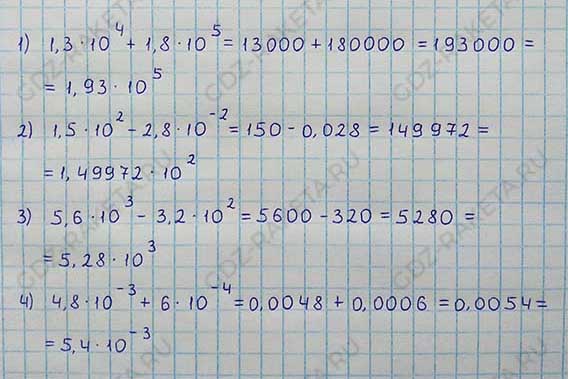 1) 1,3 · 10⁴ + 1,8 · 10⁵ = 13000 + 180000 = 193000 =
= 1,93 · 10⁵
2) 1,5 · 10² - 2,8 · 10⁻² = 150 - 0,028 = 149 972 =
= 1,49972 · 10²
3) 5,6 · 10³ - 3,2 · 10² = 5600 - 320 = 5280 =
= 5,28 · 10³
4) 4,8 · 10⁻³ + 6 · 10⁻⁴ = 0,0048 + 0,0006 = 0,0054 =
= 5,4 · 10⁻³
GDZ-RAKETA.RU